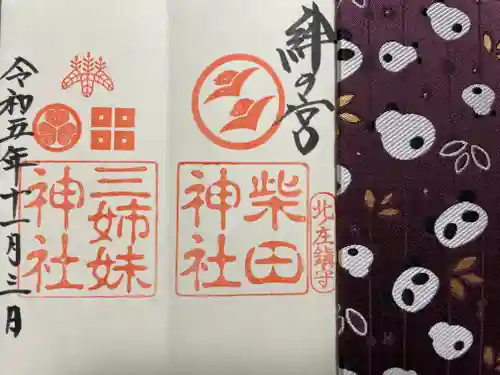 絆の宮
北庄鎮守
柴田
神社
三姉妹
神社
令和五年十一月三日